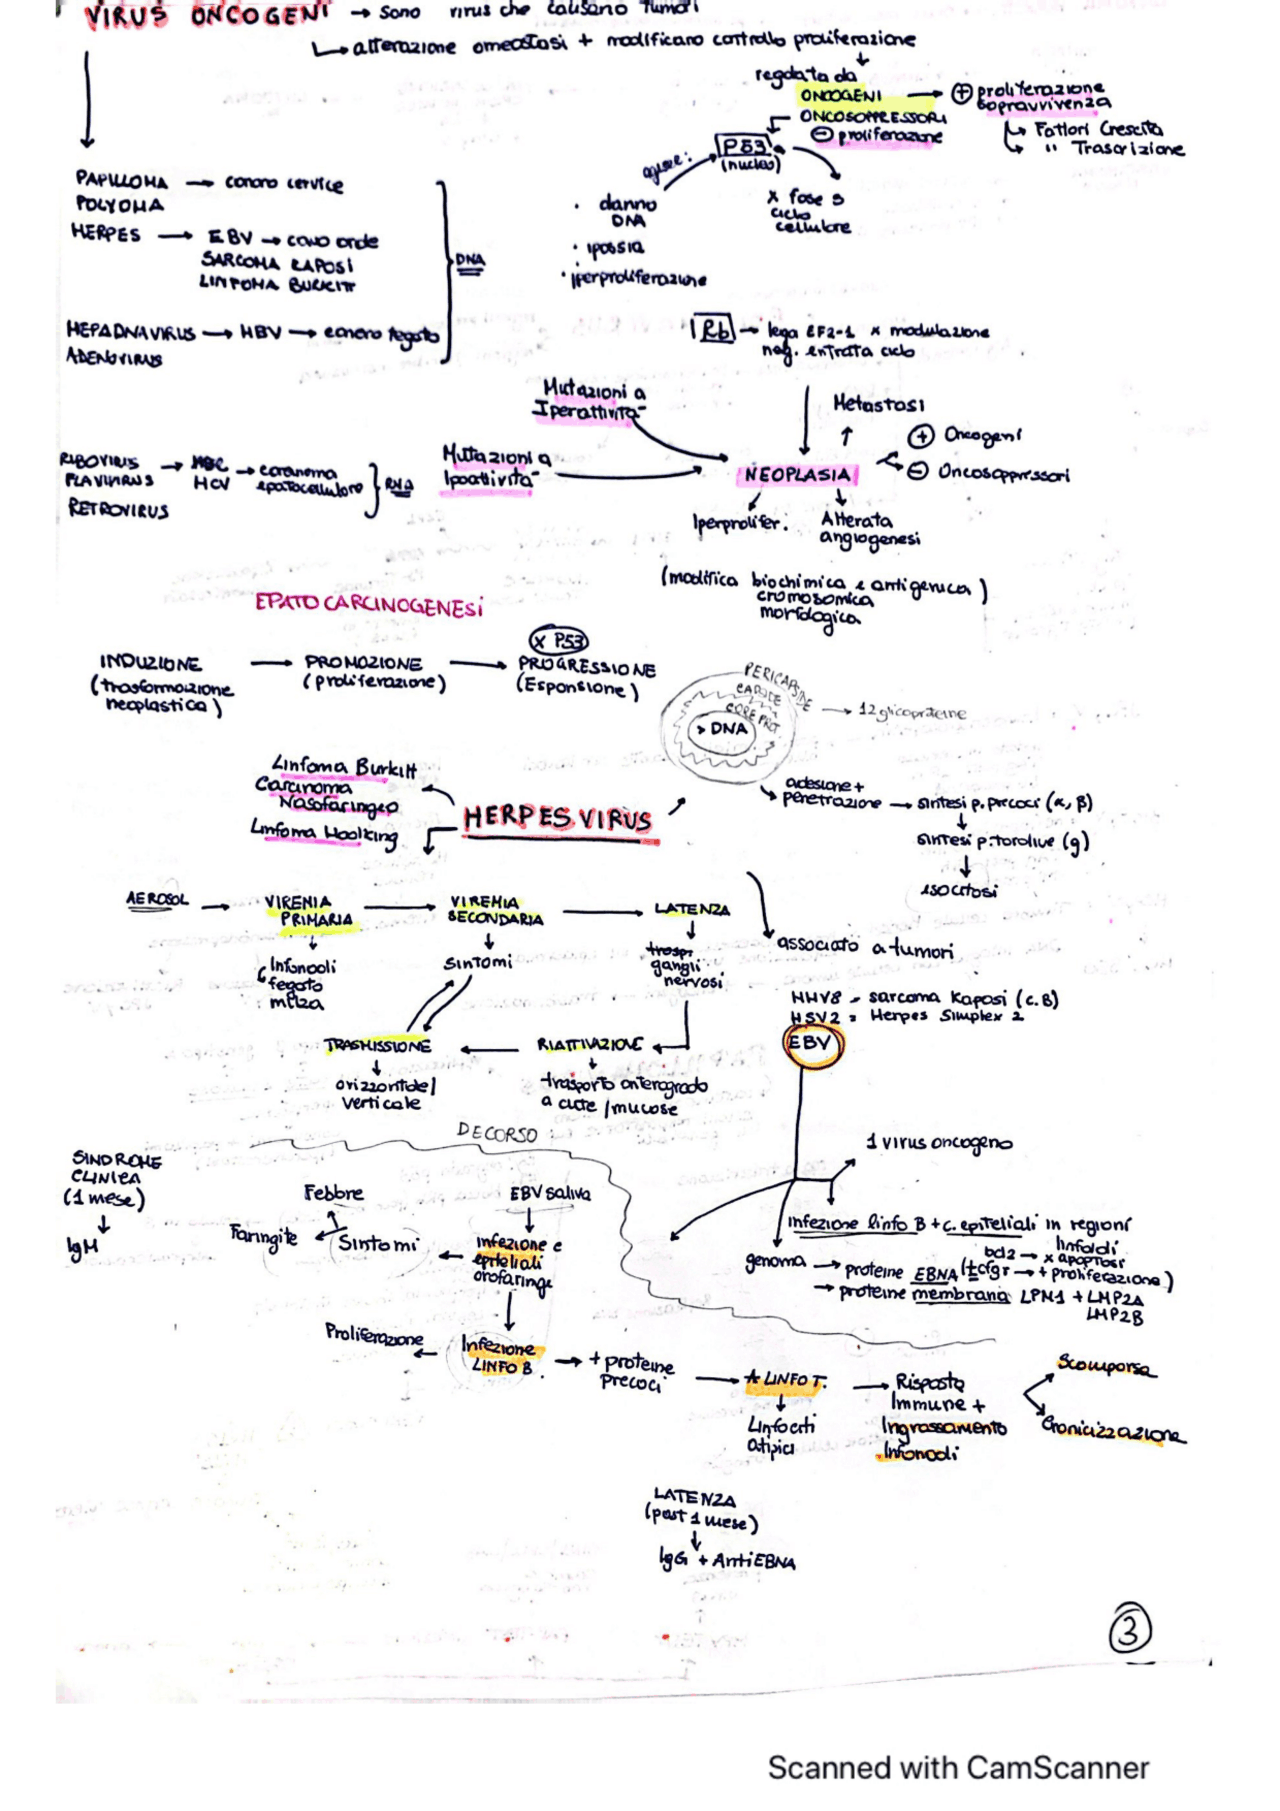 VIRUS ONCOGENI → sono virus che causano tumori
↳ alterazione omeostasi + modificano controllo proliferazione
regolata da
ONCOGENI → ⊕ proliferazione
sopravvivenza
↳ Fattori Crescita
↳ " Trascrizione
ONCOSOPPRESSORI
⊖ proliferazione
P53
(nucleo)
agisce:
· danno
DNA
· ipossia
· iperproliferazione
x fase S
ciclo
cellulare
PAPILLOMA → cancro cervice
POLYOMA
HERPES → EBV → cavo orale
SARCOMA KAPOSI
LINFOMA BURKITT
DNA
HEPADNAVIRUS → HBV → cancro fegato
ADENOVIRUS
Rb → lega EF2-1 x modulazione
neg. entrata ciclo
Mutazioni a
Iperattività
Mutazioni a
Ipoattività
RIBOVIRUS
FLAVIVIRUS → HCV → carcinoma
epatocellulare
RNA
RETROVIRUS
NEOPLASIA
Metastasi
⊕ Oncogeni
⊖ Oncosoppressori
Iperprolifer.
Alterata
angiogenesi
(modifica biochimica e antigenica)
cromosomica
morfologica
EPATOCARCINOGENESI
INDUZIONE → PROMOZIONE → PROGRESSIONE
(trasformazione
neoplastica)
(proliferazione)
(Espansione)
x P53
PERICAPSIDE
CAPSIDE
CORE PROT
DNA
→ 12 glicoproteine
Linfoma Burkitt
Carcinoma
Nasofaringeo
Linfoma Hodking
HERPES VIRUS
adesione +
penetrazione → sintesi p. precoci (α, β)
sintesi p. tardive (g)
esocitosi
AEROSOL → VIREMIA
PRIMARIA → VIREMIA
SECONDARIA → LATENZA
linfonodi
fegato
milza
sintomi
trasp.
gangli
nervosi
associato a tumori
HHV8 - sarcoma Kaposi (c. B)
HSV2 = Herpes Simplex 2
EBV
TRASMISSIONE ← RIATTIVAZIONE
orizzontale/
verticale
trasporto anterogrado
a cute/mucose
DECORSO
SINDROME
CLINICA
(1 mese)
IgM
Febbre
Faringite
Sintomi
EBV saliva
infezione c
epiteliali
orofaringe
1 virus oncogeno
infezione linfo B + c. epiteliali in regioni
linfoidi
genoma → proteine EBNA (tcfgr → + proliferazione)
bcl2 → x apoptosi
→ proteine membrana LPM1 + LMP2A
LMP2B
Proliferazione
Infezione
LINFO B.
→ + proteine
precoci
→ A LINFO T.
Linfociti
atipici
→ Risposta
Immune +
Ingrassamento
linfonodi
Scomparsa
Cronicizzazione
LATENZA
(post 1 mese)
IgG + AntiEBNA
3
Scanned with CamScanner